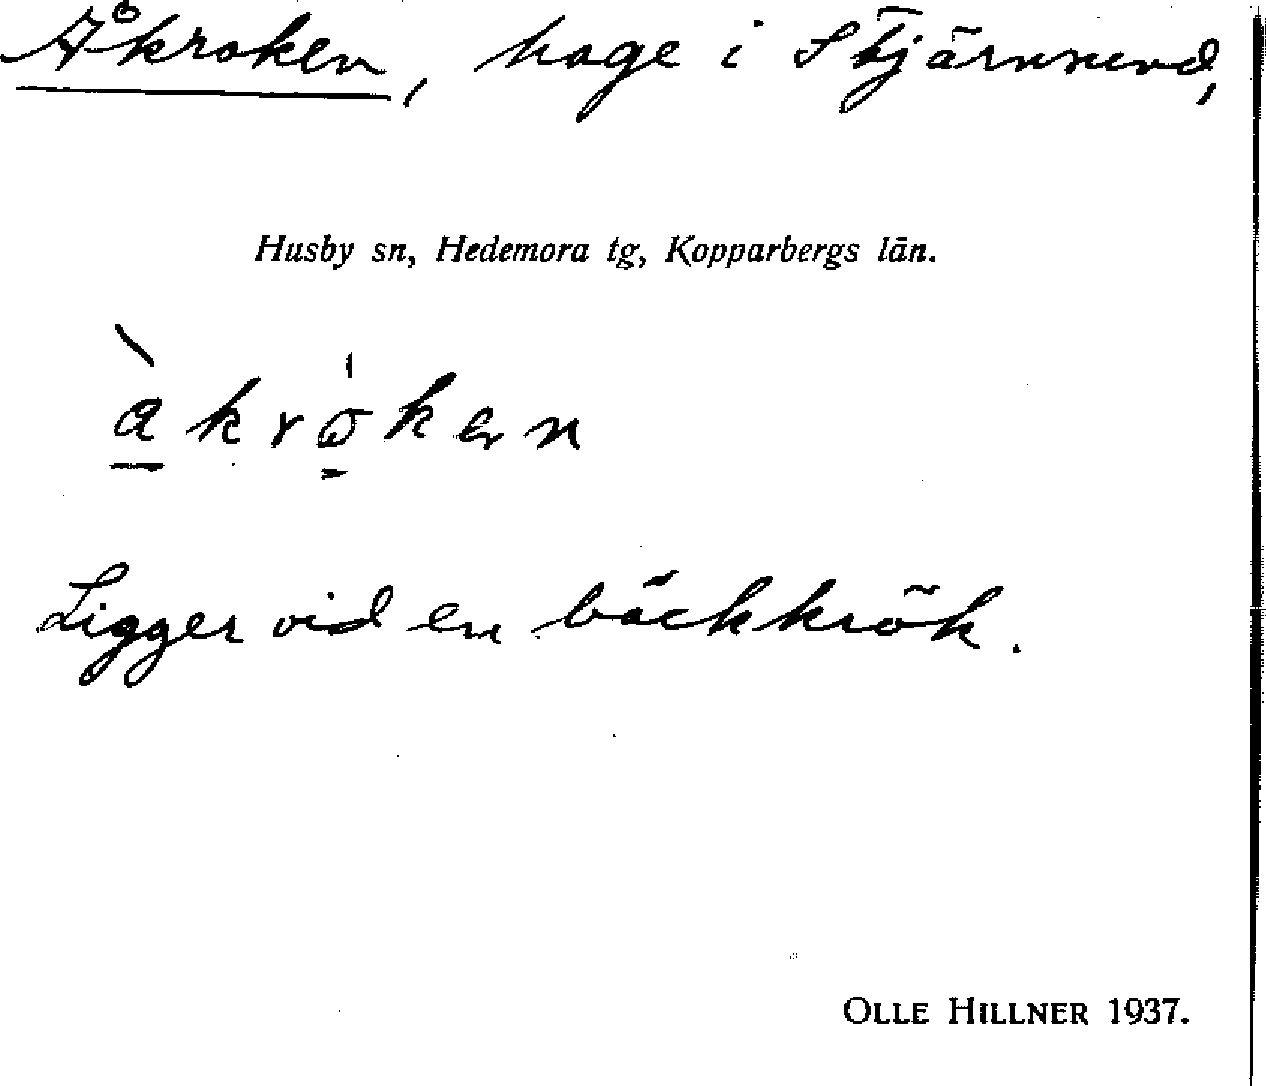 Åkroken, hage i Stjärnsund,
Husby sn, Hedemora tg, Kopparbergs län.
Ligger vid en bäckkrök.
OLLE HILLNER 1937.